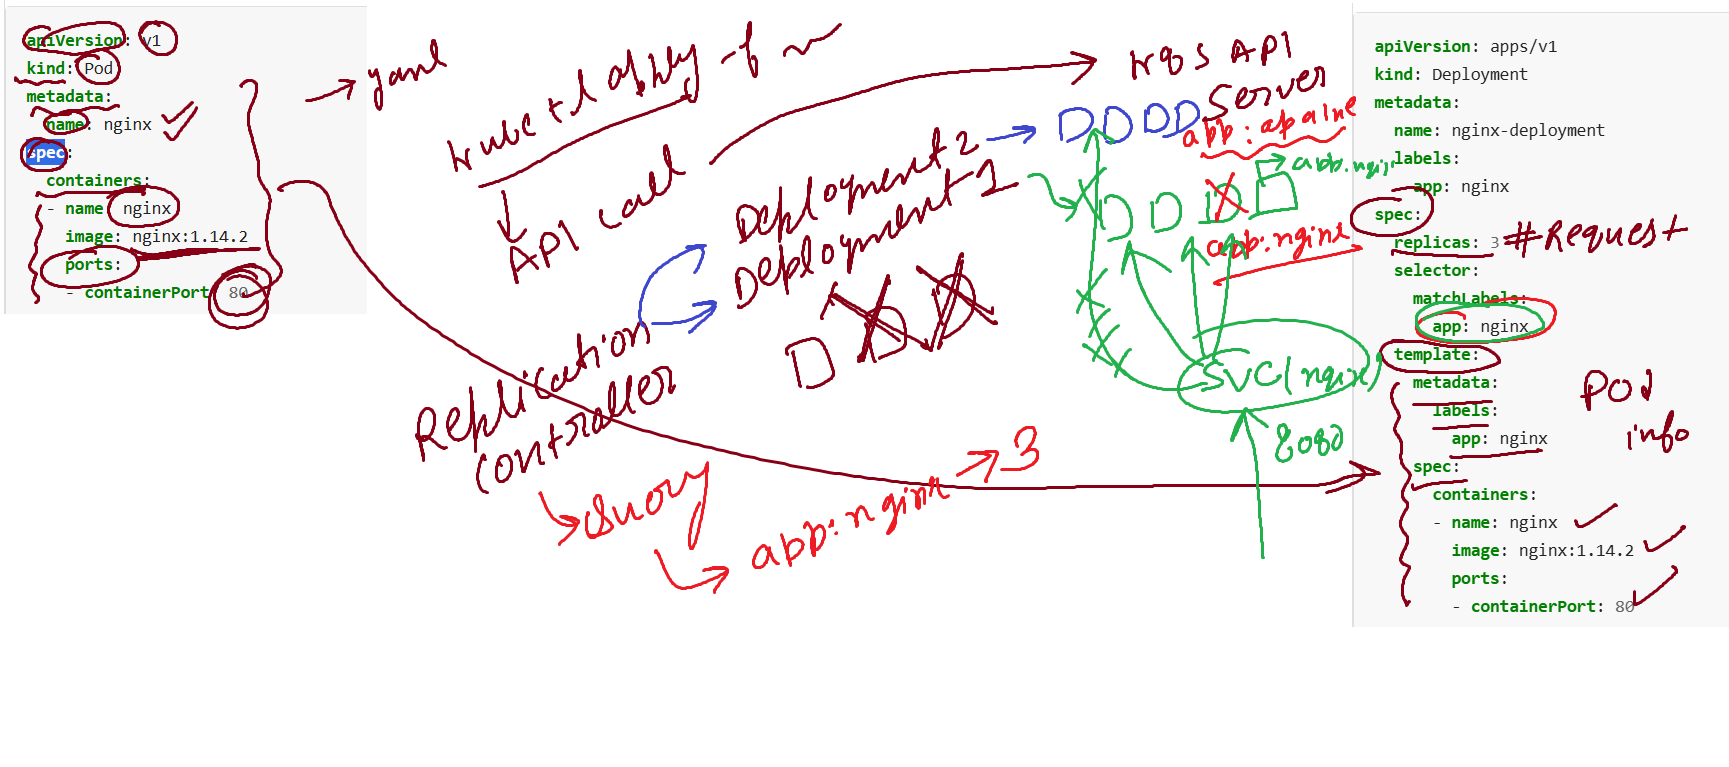 apiVersion: v1
kind: Pod
metadata:
name: nginx
spec:
containers:
- name nginx
image: nginx:1.14.2
ports:
- containerPort 80
yaml
kubectl apply -f
API call
K8s API
Server
Deployment 2
Deployment 1
Replication
Controller
Query
app:nginx
3
app:apaine
app:nginx
app:nginx
SVC(nginx)
8080
apiVersion: apps/v1
kind: Deployment
metadata:
name: nginx-deployment
labels:
app: nginx
spec:
replicas: 3 #Request
selector:
matchLabels:
app: nginx
template:
metadata:
labels:
app: nginx
spec:
containers:
- name: nginx
image: nginx:1.14.2
ports:
- containerPort: 80
Pod
info